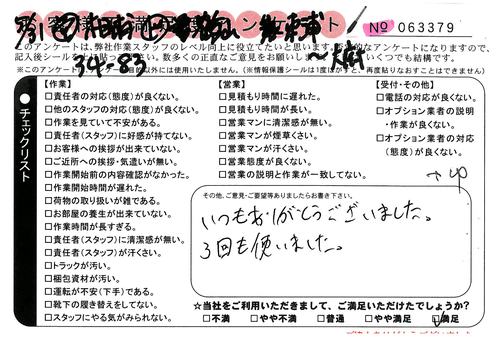 No 063379
このアンケートは、弊社作業スタッフのレベル向上に役立てたいと思います。
34-83
～大阪
チェックリスト
【作業】
□責任者の対応(態度)が良くない。
□他のスタッフの対応(態度)が良くない。
□作業を見ていて不安がある。
□責任者(スタッフ)に好感が持てない。
□お客様への挨拶が出来ていない。
□ご近所への挨拶・気遣いが無い。
□作業開始前の内容確認がなかった。
□作業開始時間が遅れた。
□荷物の取り扱いが雑である。
□お部屋の養生が出来ていない。
□作業時間が長すぎる。
□責任者(スタッフ)に清潔感が無い。
□責任者(スタッフ)が汗くさい。
□トラックが汚い。
□梱包資材が汚い。
□運転が不安(下手)である。
□靴下の履き替えをしてない。
□スタッフにやる気がみられない。
【営業】
□見積もり時間に遅れた。
□見積もり時間が長い。
□営業マンに清潔感が無い。
□営業マンが煙草くさい。
□営業マンが汗くさい。
□営業態度が良くない。
□営業の説明と作業が一致してない。
【受付・その他】
□電話の対応が良くない。
□オプション業者の説明
・作業が良くない。
□オプション業者の対応
(態度)が良くない。
その他、ご意見・ご要望等ありましたらお書き下さい。
いつもありがとうございました。
3回も使いました。
☆当社をご利用いただきまして、ご満足いただけたでしょうか?
□不満 □やや不満 □普通 □やや満足 □満足